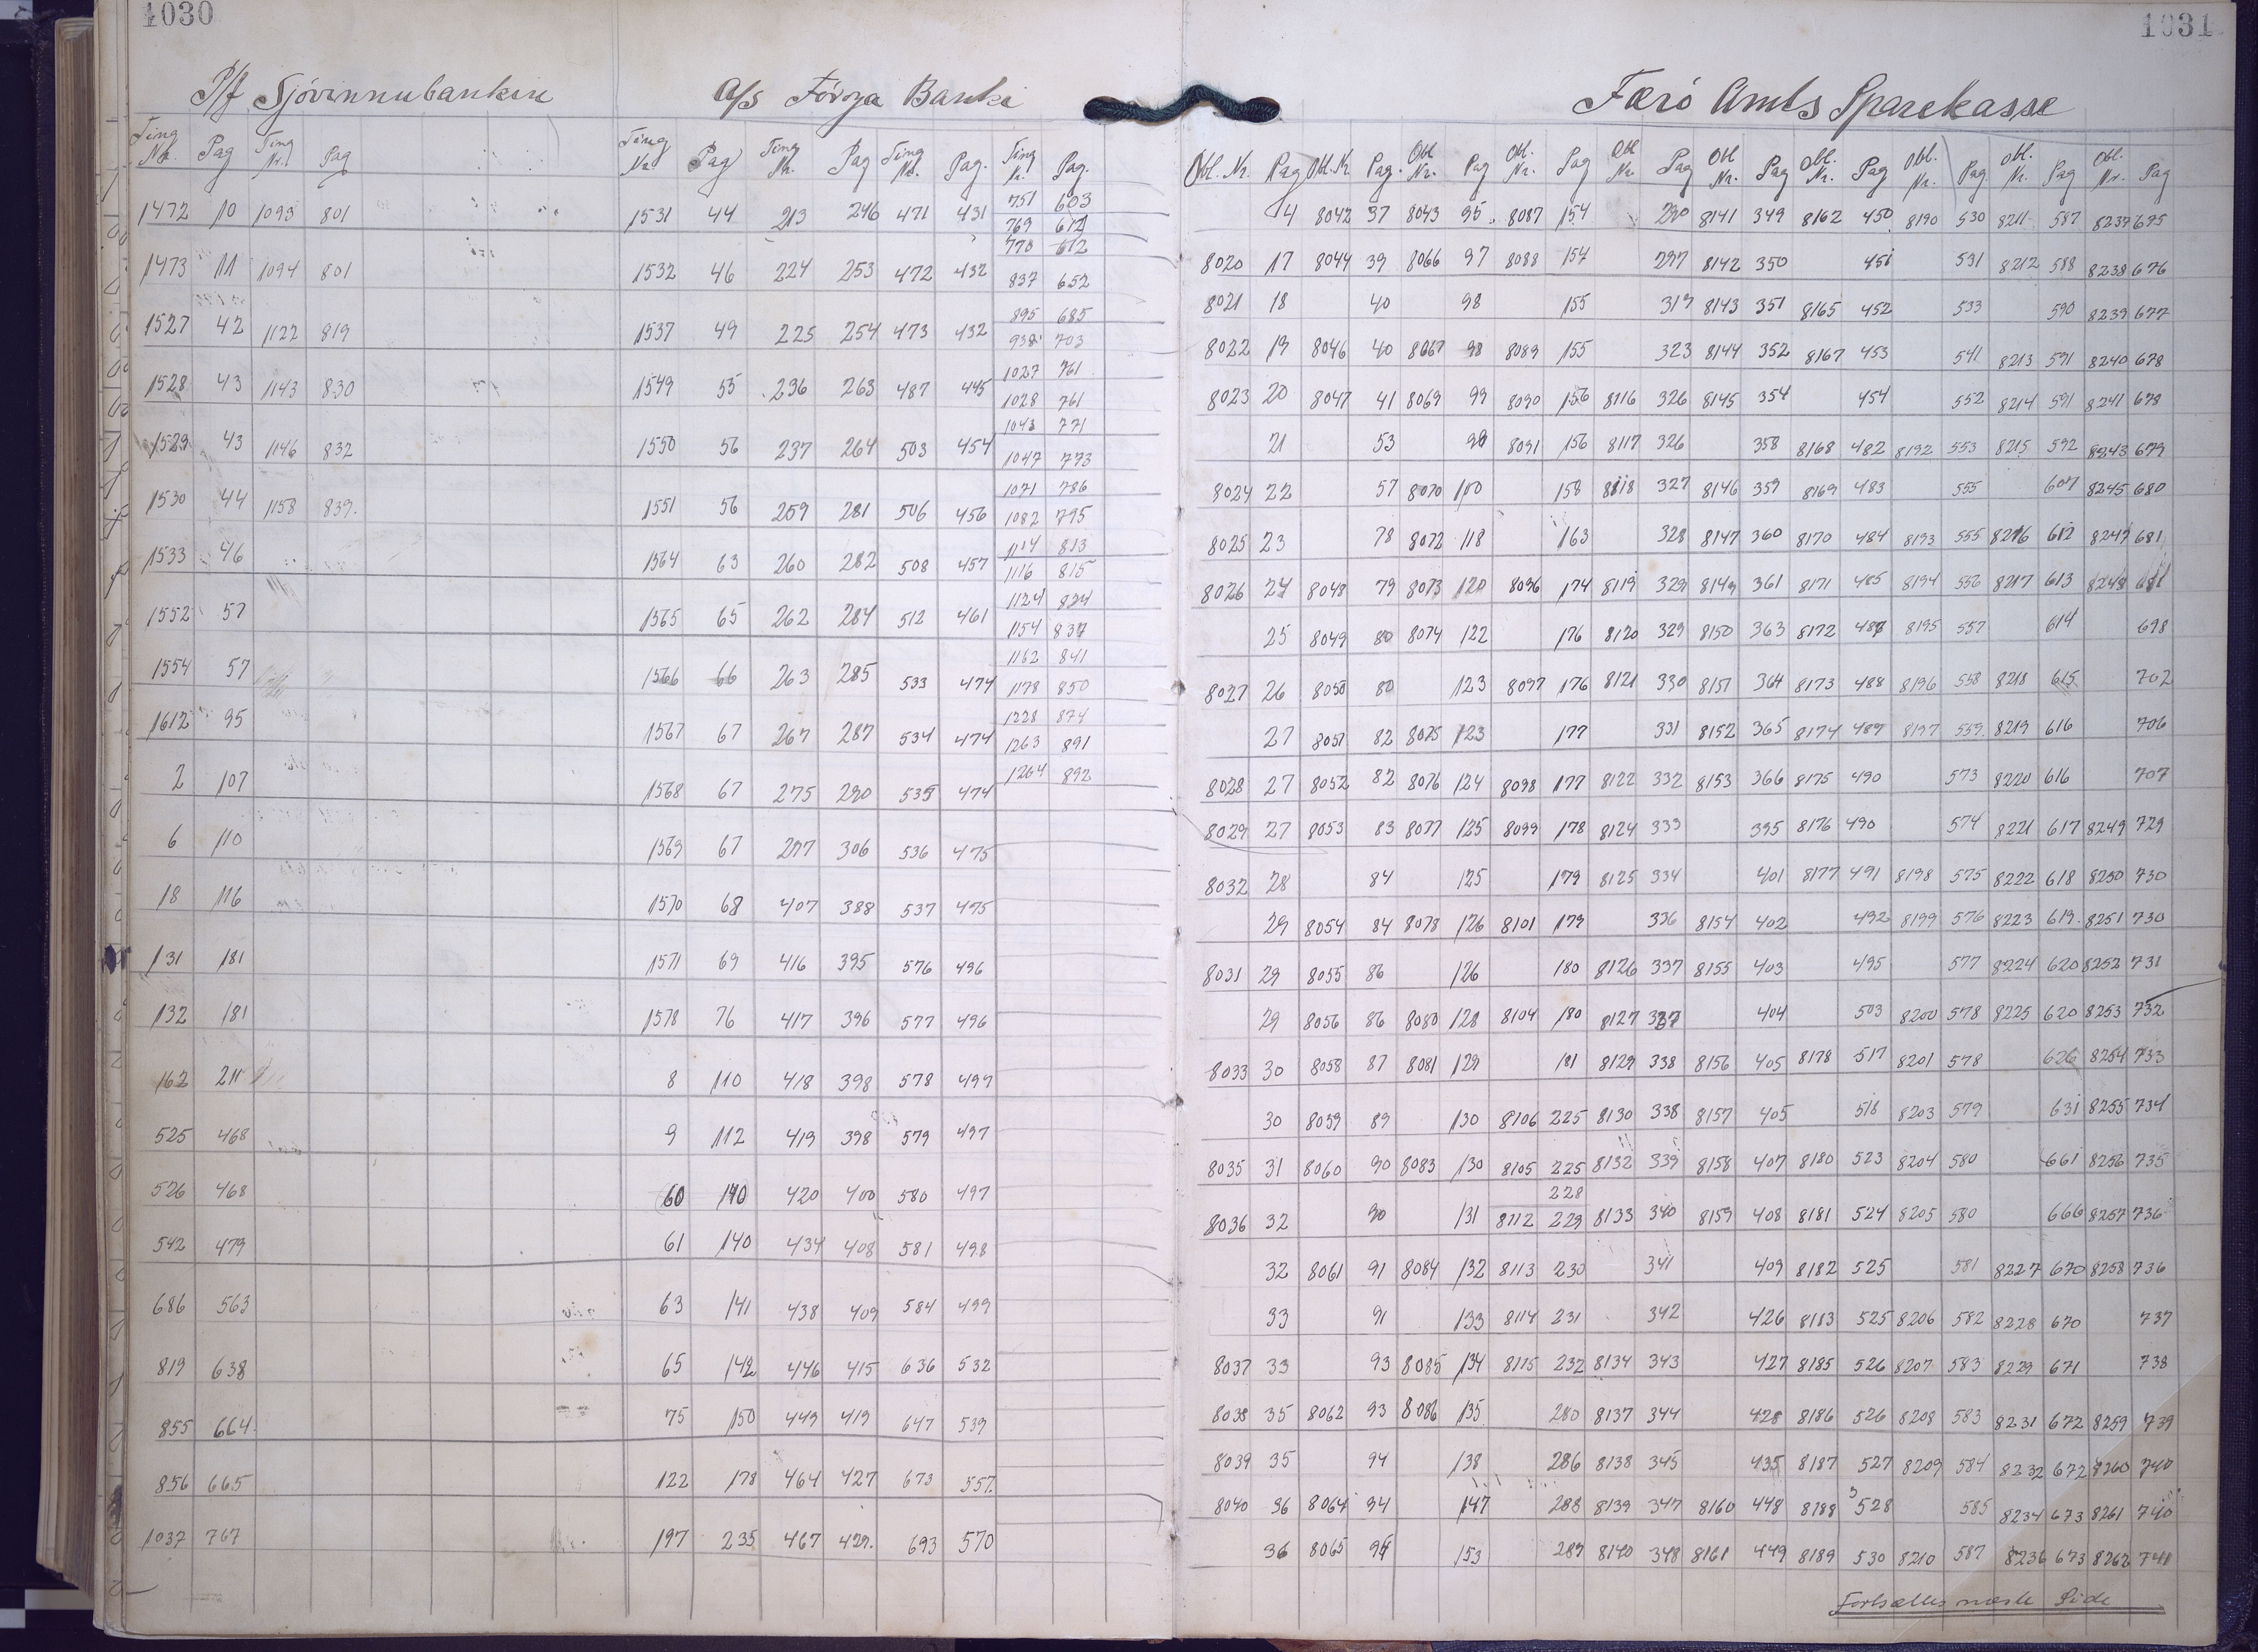 1030
P/f Sjóvinnubankin
Ting Nr. Pag Ting Nr. Pag
1472 10 1093 801
1473 11 1094 801
1527 42 1122 819
1528 43 1143 830
1529 43 1146 832
1530 44 1158 839.
1533 46
1552 57
1554 57
1612 95
2 107
6 110
18 116
131 181
132 181
162 211
525 468
526 468
542 479
686 563
819 638
855 664.
856 665
1037 767
A/s Föroya Banki
Ting Nr. Pag Ting Nr. Pag Ting Nr. Pag. Ting Nr. Pag.
1531 44 213 246 471 431 751 603
769 612
770 612
1532 46 224 253 472 432 837 652
895 685
1537 49 225 254 473 432 938 703
1027 761
1549 55 236 263 487 445 1028 761
1043 771
1550 56 237 264 503 454 1047 773
1071 786
1551 56 259 281 506 456 1082 795
1114 813
1564 63 260 282 508 457 1116 815
1124 824
1565 65 262 284 512 461 1154 837
1162 841
1566 66 263 285 533 474 1178 850
1228 874
1567 67 267 287 534 474 1263 891
1264 892
1568 67 275 290 535 474
1569 67 297 306 536 475
1570 68 407 388 537 475
1571 69 416 395 576 496
1578 76 417 396 577 496
8 110 418 398 578 497
9 112 419 398 579 497
60 140 420 400 580 497
61 140 434 408 581 498
63 141 438 409 584 499
65 142 446 415 636 532
75 150 449 419 647 539
122 178 464 427 673 557.
197 235 467 429. 693 570
1031
Færö Amts Sparekasse
Obl. Nr. Pag Obl. N. Pag. Obl Nr. Pag Obl. Nr. Pag Obl Nr. Pag Obl Nr. Pag Obl. Nr. Pag Obl. Nr. Pag Obl. Nr. Pag Obl. Nr. Pag
4 8042 37 8043 95 8087 154 290 8141 349 8162 450 8190 530 8211 587 8237 675
8020 17 8044 39 8066 97 8088 154 297 8142 350 451 531 8212 588 8238 676
8021 18 40 98 155 317 8143 351 8165 452 533 590 8239 677
8022 19 8046 40 8067 98 8089 155 323 8144 352 8167 453 541 8213 591 8240 678
8023 20 8047 41 8069 99 8090 156 8116 326 8145 354 454 552 8214 591 8241 678
21 53 99 8091 156 8117 326 358 8168 482 8192 553 8215 592 8243 679
8024 22 57 8070 100 158 8118 327 8146 359 8169 483 555 607 8245 680
8025 23 78 8072 118 163 328 8147 360 8170 484 8193 555 8216 612 8247 681
8026 24 8048 79 8073 120 8096 174 8119 329 8149 361 8171 485 8194 556 8217 613 8248 681
25 8049 80 8074 122 176 8120 329 8150 363 8172 487 8195 557 614 698
8027 26 8050 80 123 8097 176 8121 330 8151 364 8173 488 8196 558 8218 615 702
27 8051 82 8075 123 177 331 8152 365 8174 489 8197 559 8219 616 706
8028 27 8052 82 8076 124 8098 177 8122 332 8153 366 8175 490 573 8220 616 707
8029 27 8053 83 8077 125 8099 178 8124 333 395 8176 490 574 8221 617 8249 729
8032 28 84 125 179 8125 334 401 8177 491 8198 575 8222 618 8250 730
29 8054 84 8078 126 8101 179 336 8154 402 492 8199 576 8223 619 8251 730
8031 29 8055 86 126 180 8126 337 8155 403 495 577 8224 620 8252 731
29 8056 86 8080 128 8104 180 8127 337 404 503 8200 578 8225 620 8253 732
8033 30 8058 87 8081 129 181 8129 338 8156 405 8178 517 8201 578 626 8254 733
30 8059 89 130 8106 225 8130 338 8157 405 518 8203 579 631 8255 734
8035 31 8060 90 8083 130 8105 225 8132 339 8158 407 8180 523 8204 580 661 8256 735
228
8036 32 90 131 8112 229 8133 340 8159 408 8181 524 8205 580 666 8257 736
32 8061 91 8084 132 8113 230 341 409 8182 525 581 8227 670 8258 736
33 91 133 8114 231 342 426 8183 525 8206 582 8228 670 737
8037 33 93 8085 134 8115 232 8134 343 427 8185 526 8207 583 8229 671 738
8038 35 8062 93 8086 135 280 8137 344 428 8186 526 8208 583 8231 672 8259 739
8039 35 94 138 286 8138 345 435 8187 527 8209 584 8232 672 8260 740
8040 36 8064 94 147 288 8139 347 8160 448 8188 528 585 8234 673 8261 740
36 8065 94 153 289 8140 348 8161 449 8189 530 8210 587 8236 673 8262 741
Fortsættes næste Side